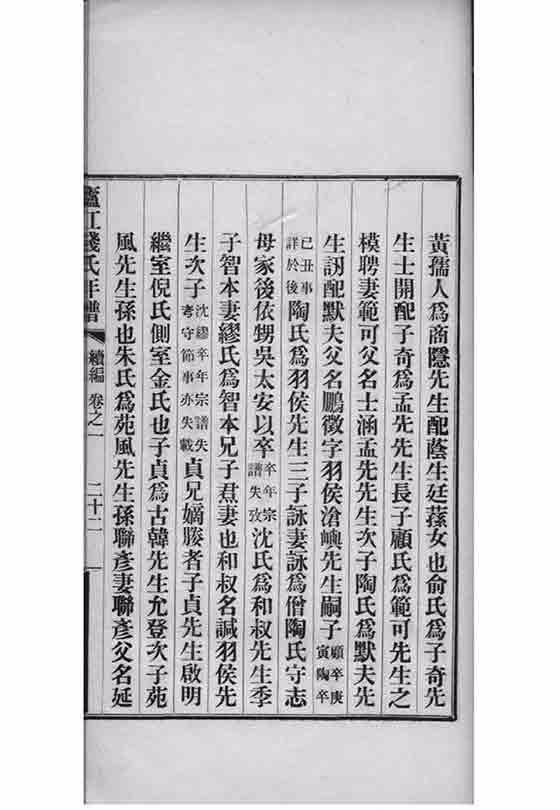 黃孺人爲商隱先生配蔭生廷蓀女也俞氏爲子奇先
生士開配子奇爲孟先先生長子顧氏爲範可先生之
模聘妻範可父名士涵孟先先生次子陶氏爲默夫先
生訒配默夫父名鵬徵字羽侯滄嶼先生嗣子顧卒庚寅陶卒
己丑事詳於後陶氏爲羽侯先生三子詠妻詠爲僧陶氏守志
母家後依甥吳太安以卒卒年宗譜失攷沈氏爲和叔先生季
子智本妻繆氏爲智本兄子焄妻也和叔名諴羽侯先
生次子沈繆卒年宗譜失考守節事亦失載貞兄嫡媵者子貞先生啟明
繼室倪氏側室金氏也子貞爲古韓先生允登次子苑
風先生孫也朱氏爲苑風先生孫聯彥妻聯彥父名延
廬江錢氏年譜 續編 卷之一 二十二